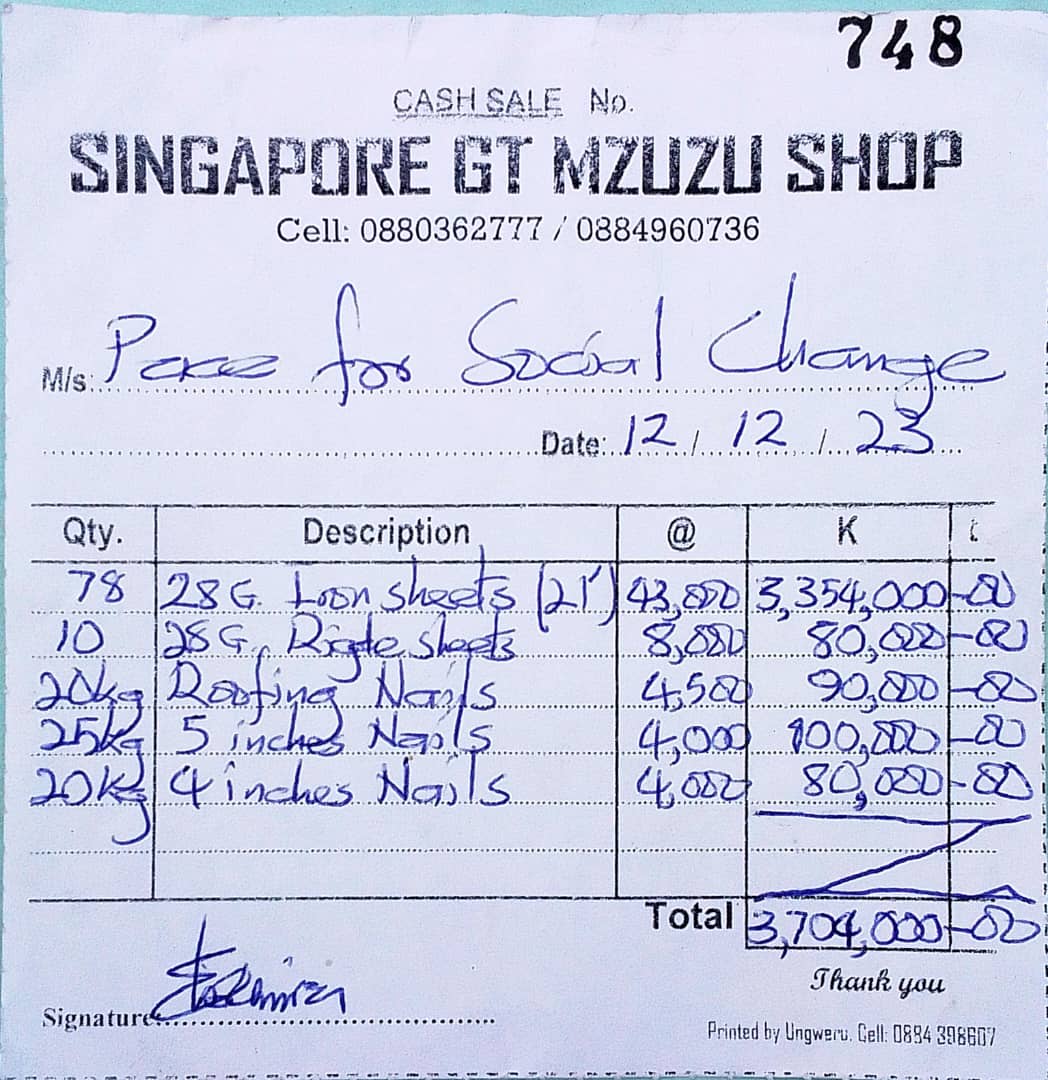 748
CASH SALE No.
SINGAPORE GT MZUZU SHOP
Cell: 0880362777 / 0884960736
M/s: Peace for Social Change
Date: 12 / 12 / 23
Qty. Description @ K t
78 28G. Iron sheets (21') 43,000 3,354,000-00
10 28G. Rigde sheets 8,000 80,000-00
20kg Roofing Nails 4,500 90,000-00
25kg 5 inches Nails 4,000 100,000-00
20Kg 4 inches Nails 4,000 80,000-00
Total 3,704,000-00
Thank you
Signature
Printed by Ungweru. Cell: 0884 398607